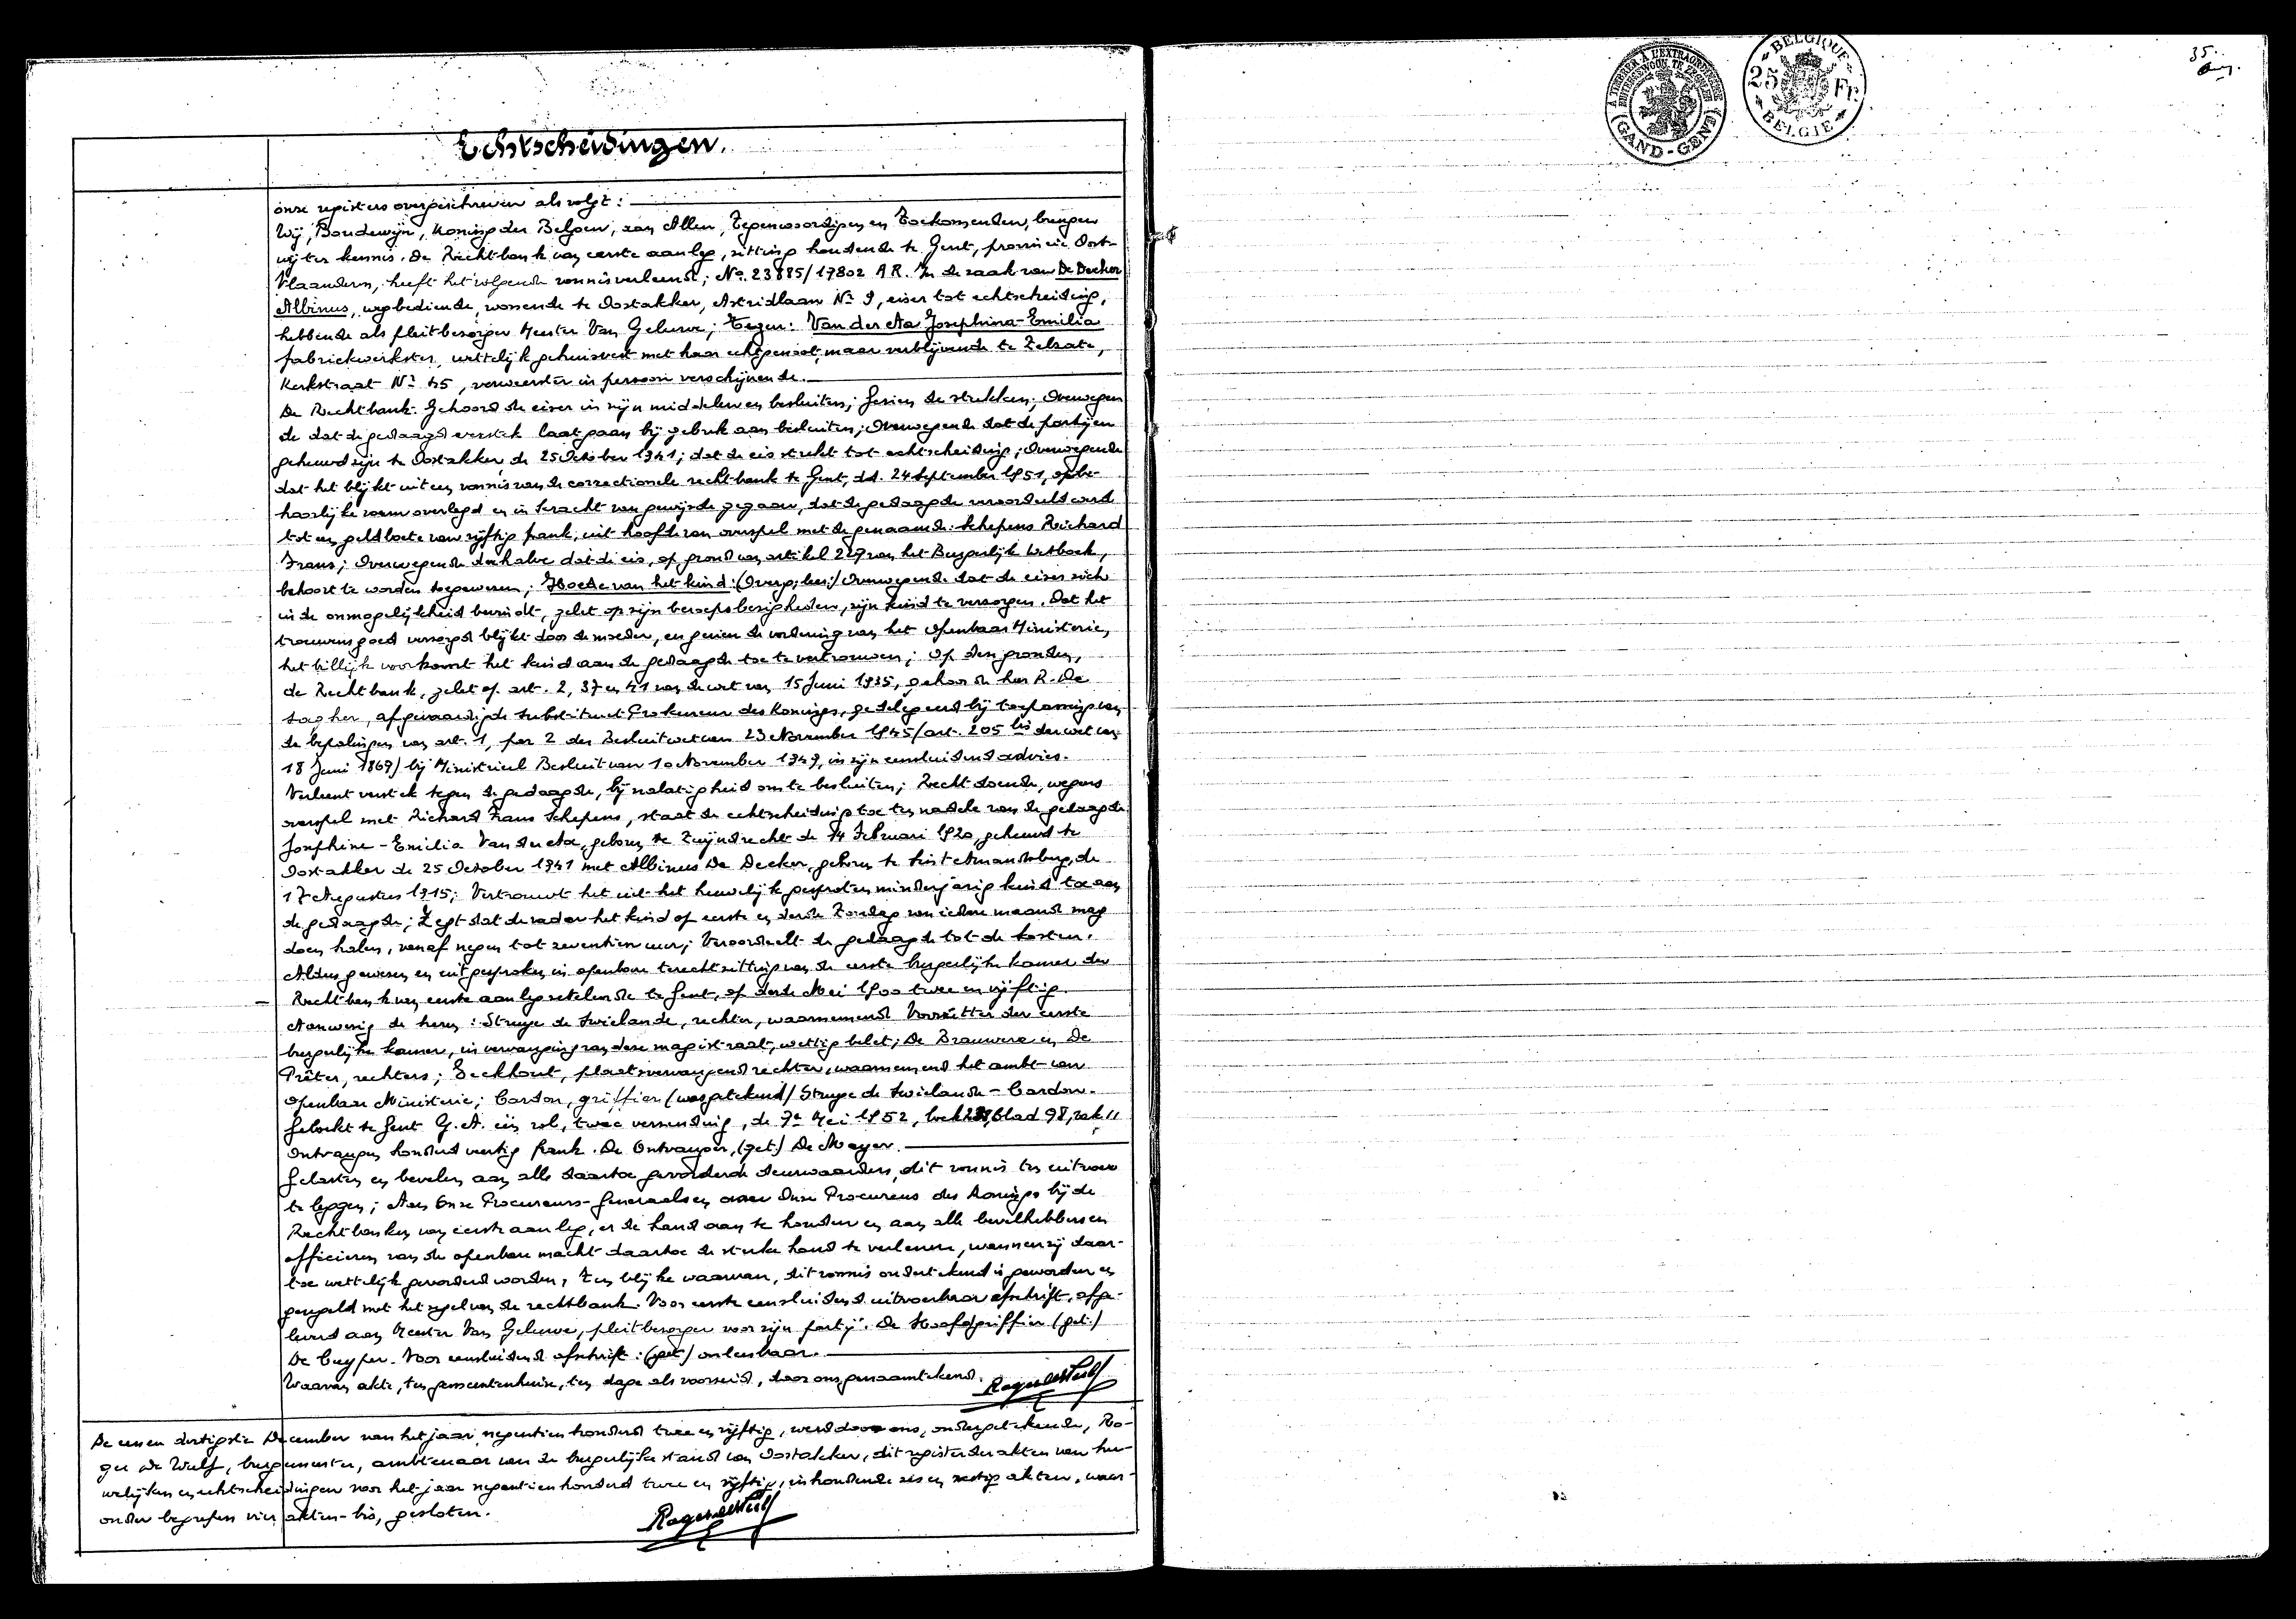 Echtscheidingen.
onze registers overgeschreven als volgt:
Wij, Boudewijn, Koning der Belgen, aan Allen, Tegenwoordigen en Toekomenden, brengen
wij ter kennis. De Rechtbank van eerste aanleg, zitting houdende te Gent, provincie Oost-
Vlaanderen, heeft het volgende vonnis verleend; No. 23885/17802 A.R. In de zaak van De Decker
Albinus, wegbediende, wonende te Oostakker, Astridlaan No 9, eiser tot echtscheiding,
hebbende als pleitbezorger Meester Van Geluwe; Tegen: Van der Aa Josephina-Emilia
fabriekwerkster, wettelijk gehuisvest met haar echtgenoot, maar verblijvende te Zelzate,
Kerkstraat No 45, verweerster in persoon verschijnende.
De Rechtbank. Gehoord de eiser in zijn middelen en besluiten; Gezien de stukken; Overwegen
de dat de gedaagde verstek laat gaan bij gebrek aan besluiten; Overwegende dat de partijen
gehuwd zijn te Oostakker, de 25 October 1941; dat de eis strekt tot echtscheiding; Overwegende
dat het blijkt uit een vonnis van de correctionele rechtbank te Gent, dd. 24 September 1951, in be-
hoorlijke vorm overlegd en in kracht van gewijsde gegaan, dat de gedaagde veroordeeld werd
tot een geldboete van vijftig frank, uit hoofde van overspel met de genaamde: Schepens Richard
Frans; Overwegende derhalve dat de eis, op grond van artikel 229 van het Burgerlijk Wetboek,
behoort te worden toegewezen; Hoede van het kind: (Overg; lees:) Overwegende dat de eiser zich
in de onmogelijkheid bevindt, gelet op zijn beroepsbezigheden, zijn kind te verzorgen. Dat het
trouwens goed verzorgd blijkt door de moeder, en gezien de vordering van het Openbaar Ministerie,
het billijk voorkomt het kind aan de gedaagde toe te vertrouwen; Op deze gronden,
de Rechtbank, gelet op art. 2, 37 en 41 van de wet van 15 Juni 1935, gehoord de heer R. De
Sagher, afgevaardigde Substituut-Prokureur des Konings, gedelegeerd bij toepassing van
de bepalingen van art. 1, par 2 der Besluitwet van 23 November 1945/art. 205 bis der wet van
18 Juni 1869/ bij Ministerieel Besluit van 10 November 1949, in zijn eensluidend advies.
Verleent verstek tegen de gedaagde, bij nalatigheid om te besluiten; Recht doende, wegens
overspel met Richard Frans Schepens, staat de echtscheiding toe ten nadele van de gedaagde
Josephine-Emilia Van der Aa, geboren te Zwijndrecht de 14 Februari 1920, gehuwd te
Oostakker de 25 October 1941 met Albinus De Decker, geboren te Sint Amandsberg, de
17 Augustus 1915; Vertrouwt het uit het huwelijk gesproten minderjarig kind toe aan
de gedaagde; Zegt dat de vader het kind op eerste en derde Zondag van iedere maand mag
doen halen, vanaf negen tot zeventien uur; Veroordeelt de gedaagde tot de kosten.
Aldus gewezen en uitgesproken in openbare terechtzitting van de eerste burgerlijke kamer der
Rechtbank van eerste aanleg zetelende te Gent, op derde Mei 1900 twee en vijftig.
Aanwezig de heren: Struye de Swielande, rechter, waarnemend Voorzitter der eerste
burgerlijke kamer, in vervanging van deze magistraat, wettig belet; De Brauwere en De
Prêter, rechters; Eeckhout, plaatsvervangend rechter, waarnemend het ambt van
Openbaar Ministerie; Cardon, griffier (was getekend) Struye de Swielande - Cardon.
Geboekt te Gent G.A. een rol, twee verzending, de 7e Mei 1952, boek blad 98, vak 11
Ontvangen honderd veertig frank. De Ontvanger, (get.) De Meyer.
Gelasten en bevelen aan alle daartoe gevorderde deurwaarders, dit vonnis ten uitvoer
te leggen; Aan Onze Procureurs-Generaal en aan Onze Procureurs des Konings bij de
Rechtbanken van eerste aanleg, er de hand aan te houden en aan alle bevelhebbers en
officieren van de openbare macht daartoe de sterke hand te verlenen, wanneer zij daar-
toe wettelijk gevorderd worden, Ten blijke waarvan, dit vonnis ondertekend is geworden en
gezegeld met het zegel van de rechtbank. Voor eerste eensluidend uitvoerbaar afschrift, afge-
leverd aan Meester Van Geluwe, pleitbezorger voor zijn partij. De Hoofdgriffier (get.)
De Cuyper. Voor eensluidend afschrift: (get) onleesbaar.
Waarvan akte, ten gemeentenhuize, ten dage als voorzeid, door ons genaamtekend. Roger de Wulf
De een en dertigste December van het jaar negentien honderd twee en vijftig, werd door ons, ondergetekende, Ro-
ger De Wulf, burgemeester, ambtenaar van de burgerlijke stand van Oostakker, dit register der akten van hu-
welijken en echtscheidingen voor het jaar negentien honderd twee en vijftig, inhoudende zes en zestig akten, waar-
onder begrepen vier akten-bis, gesloten.
Roger de Wulf
A TIMBRER A L'EXTRAORDINAIRE
BUITENGEWOON TE ZEGELEN
(GAND-GENT)
BELGIQUE
25 Fr.
BELGIE
35.